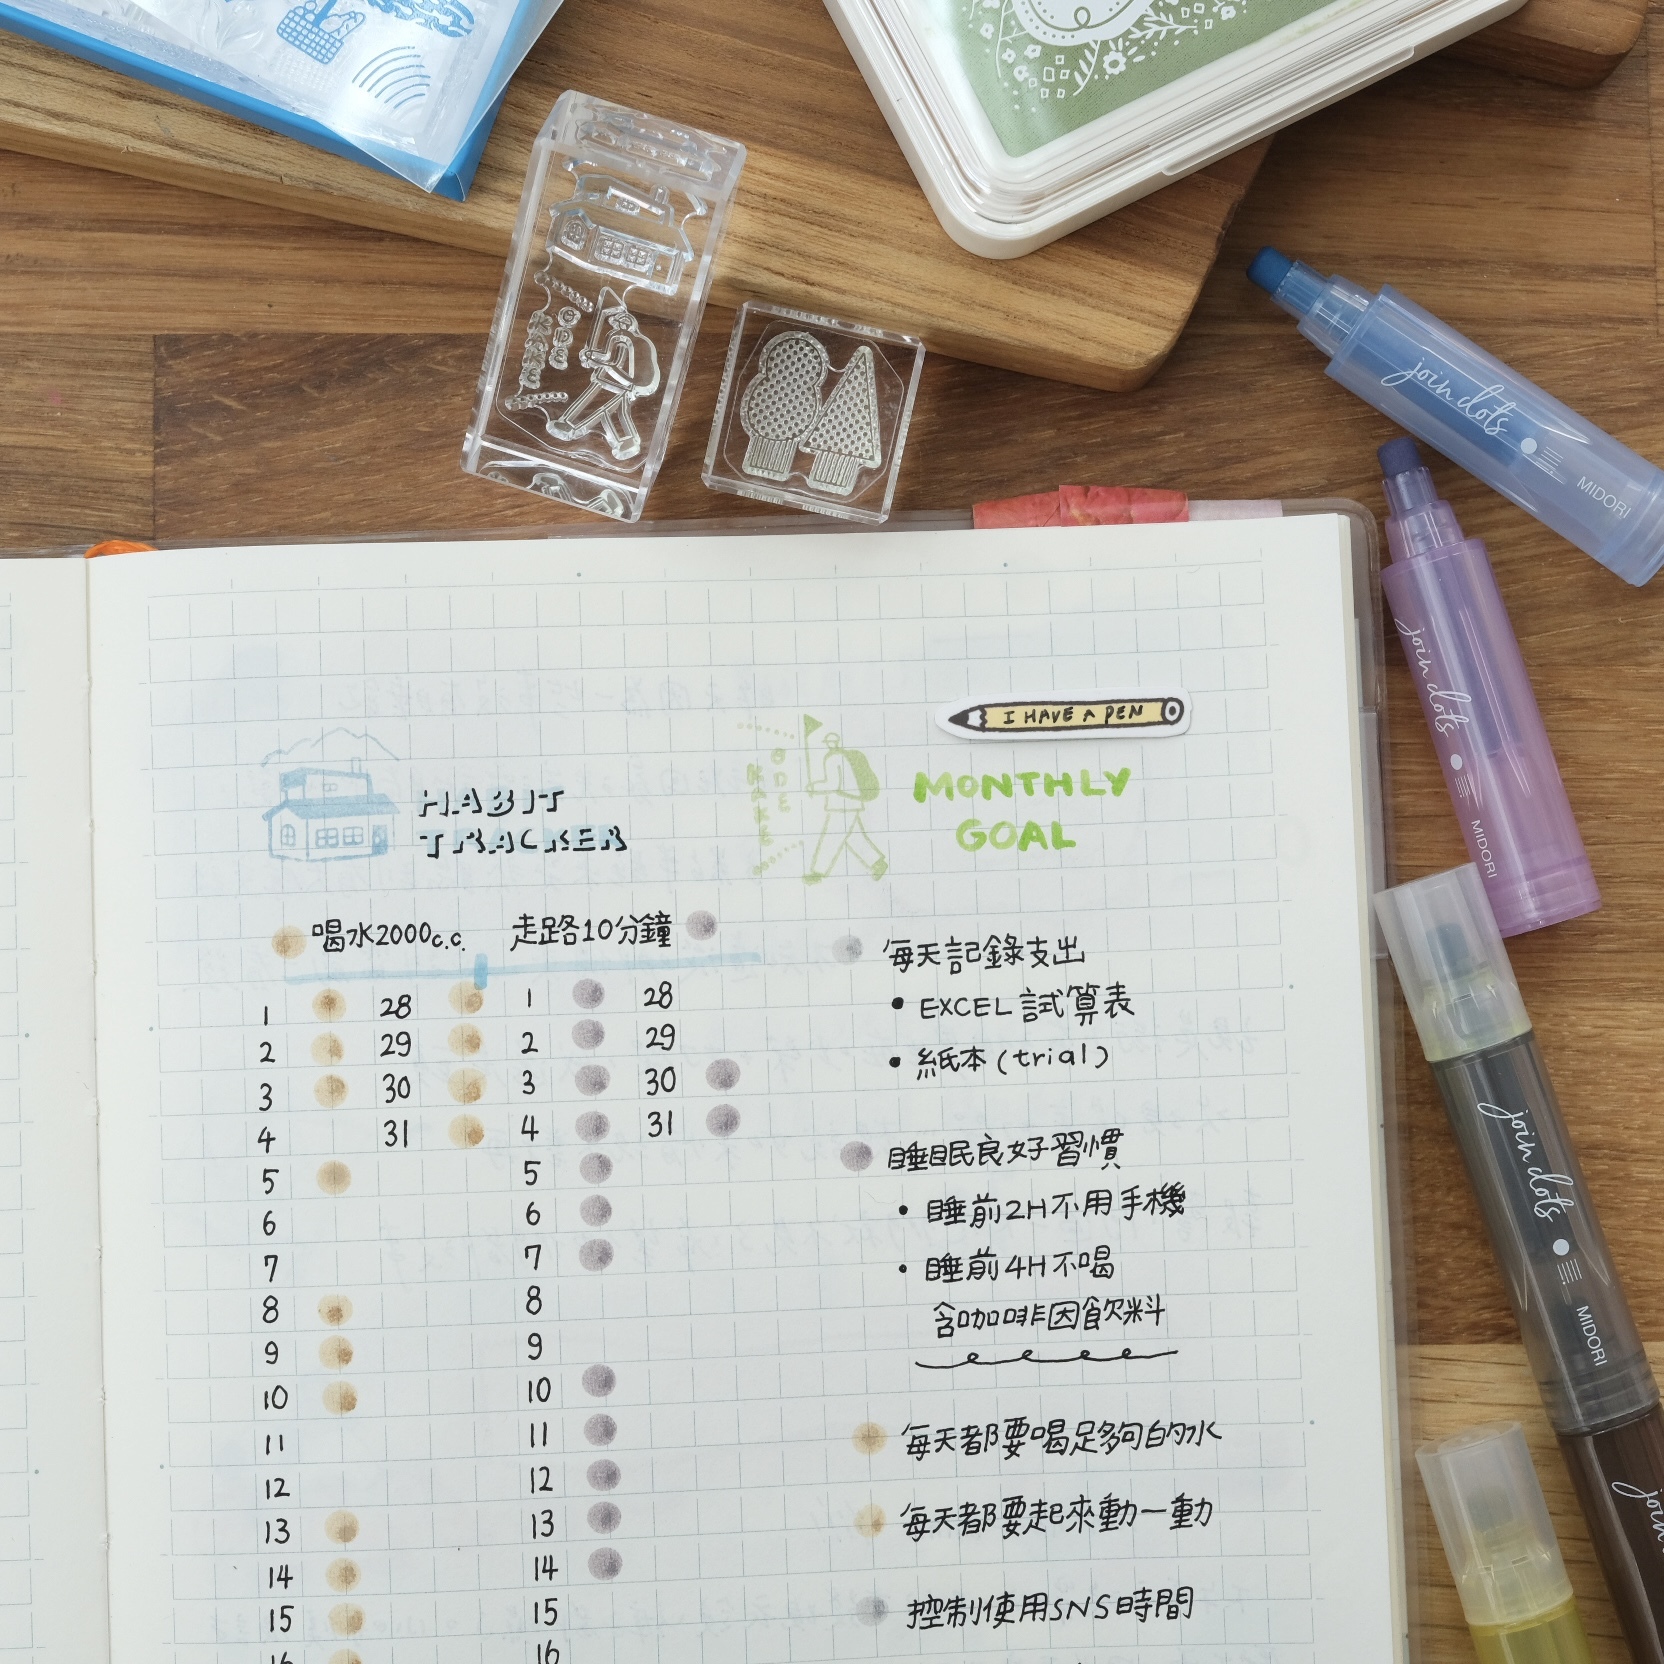 join dots
MIDORI
join dots
MIDORI
I HAVE A PEN
HABIT
TRACKER
MONTHLY
GOAL
喝水2000c.c.
走路10分鐘
1 28 1 28
2 29 2 29
3 30 3 30
4 31 4 31
5 5
6 6
7 7
8 8
9 9
10 10
11 11
12 12
13 13
14 14
15 15
16 16
每天記錄支出
• EXCEL 試算表
• 紙本(trial)
睡眠良好習慣
• 睡前2H不用手機
• 睡前4H不喝
含咖啡因飲料
每天都要喝足夠的水
每天都要起來動一動
控制使用SNS時間
join dots
MIDORI
join